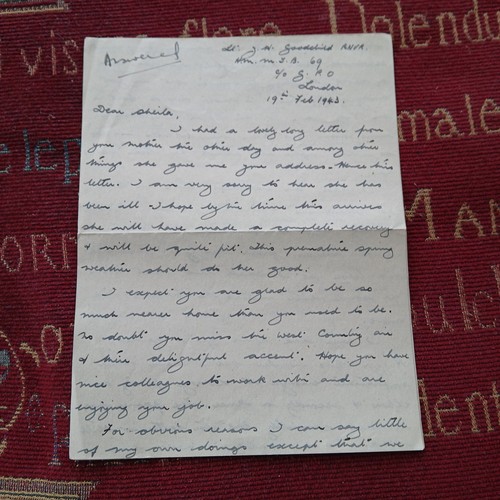 Answered
Lt. J. H. Goodchild RNVR.
H.M. M.T.B. 69
c/o G.P.O
London
19th Feb 1943.
Dear Sheila,
I had a lovely long letter from
your mother the other day and among other
things she gave me your address - Hence this
letter. I am very sorry to hear she has
been ill - I hope by the time this arrives
she will have made a complete recovery
& will be quite fit. This premature spring
weather should do her good.
I expect you are glad to be so
much nearer home than you used to be.
No doubt you miss the West Country air
& their delightful accent. Hope you have
nice colleagues to work with and are
enjoying your job.
For obvious reasons I can say little
of my own doings except that we
Dolendu
male
MAN